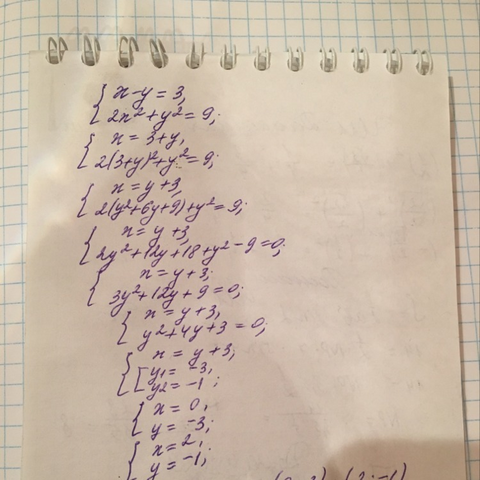 { x-y=3,
2x²+y²=9;
{ x=3+y,
2(3+y)²+y²=9;
{ x=y+3,
2(y²+6y+9)+y²=9;
{ x=y+3,
2y²+12y+18+y²-9=0;
{ x=y+3;
3y²+12y+9=0;
{ x=y+3,
y²+4y+3=0;
{ x=y+3,
[ y₁=-3,
y₂=-1;
{ x=0,
y=-3;
{ x=2,
y=-1;
(2;-1)